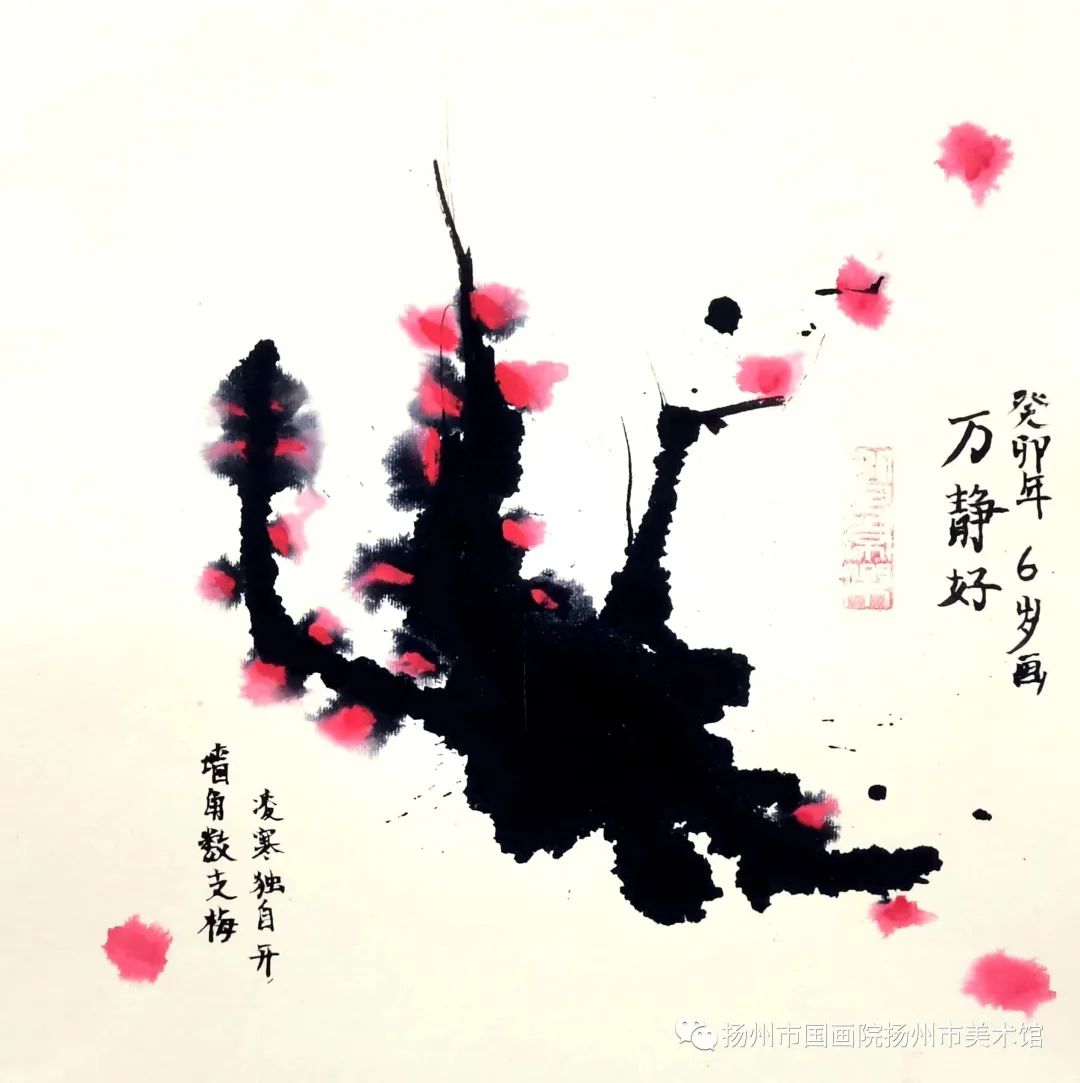 癸卯年 6岁画
万静好
墙角数支梅
凌寒独自开
扬州市国画院扬州市美术馆